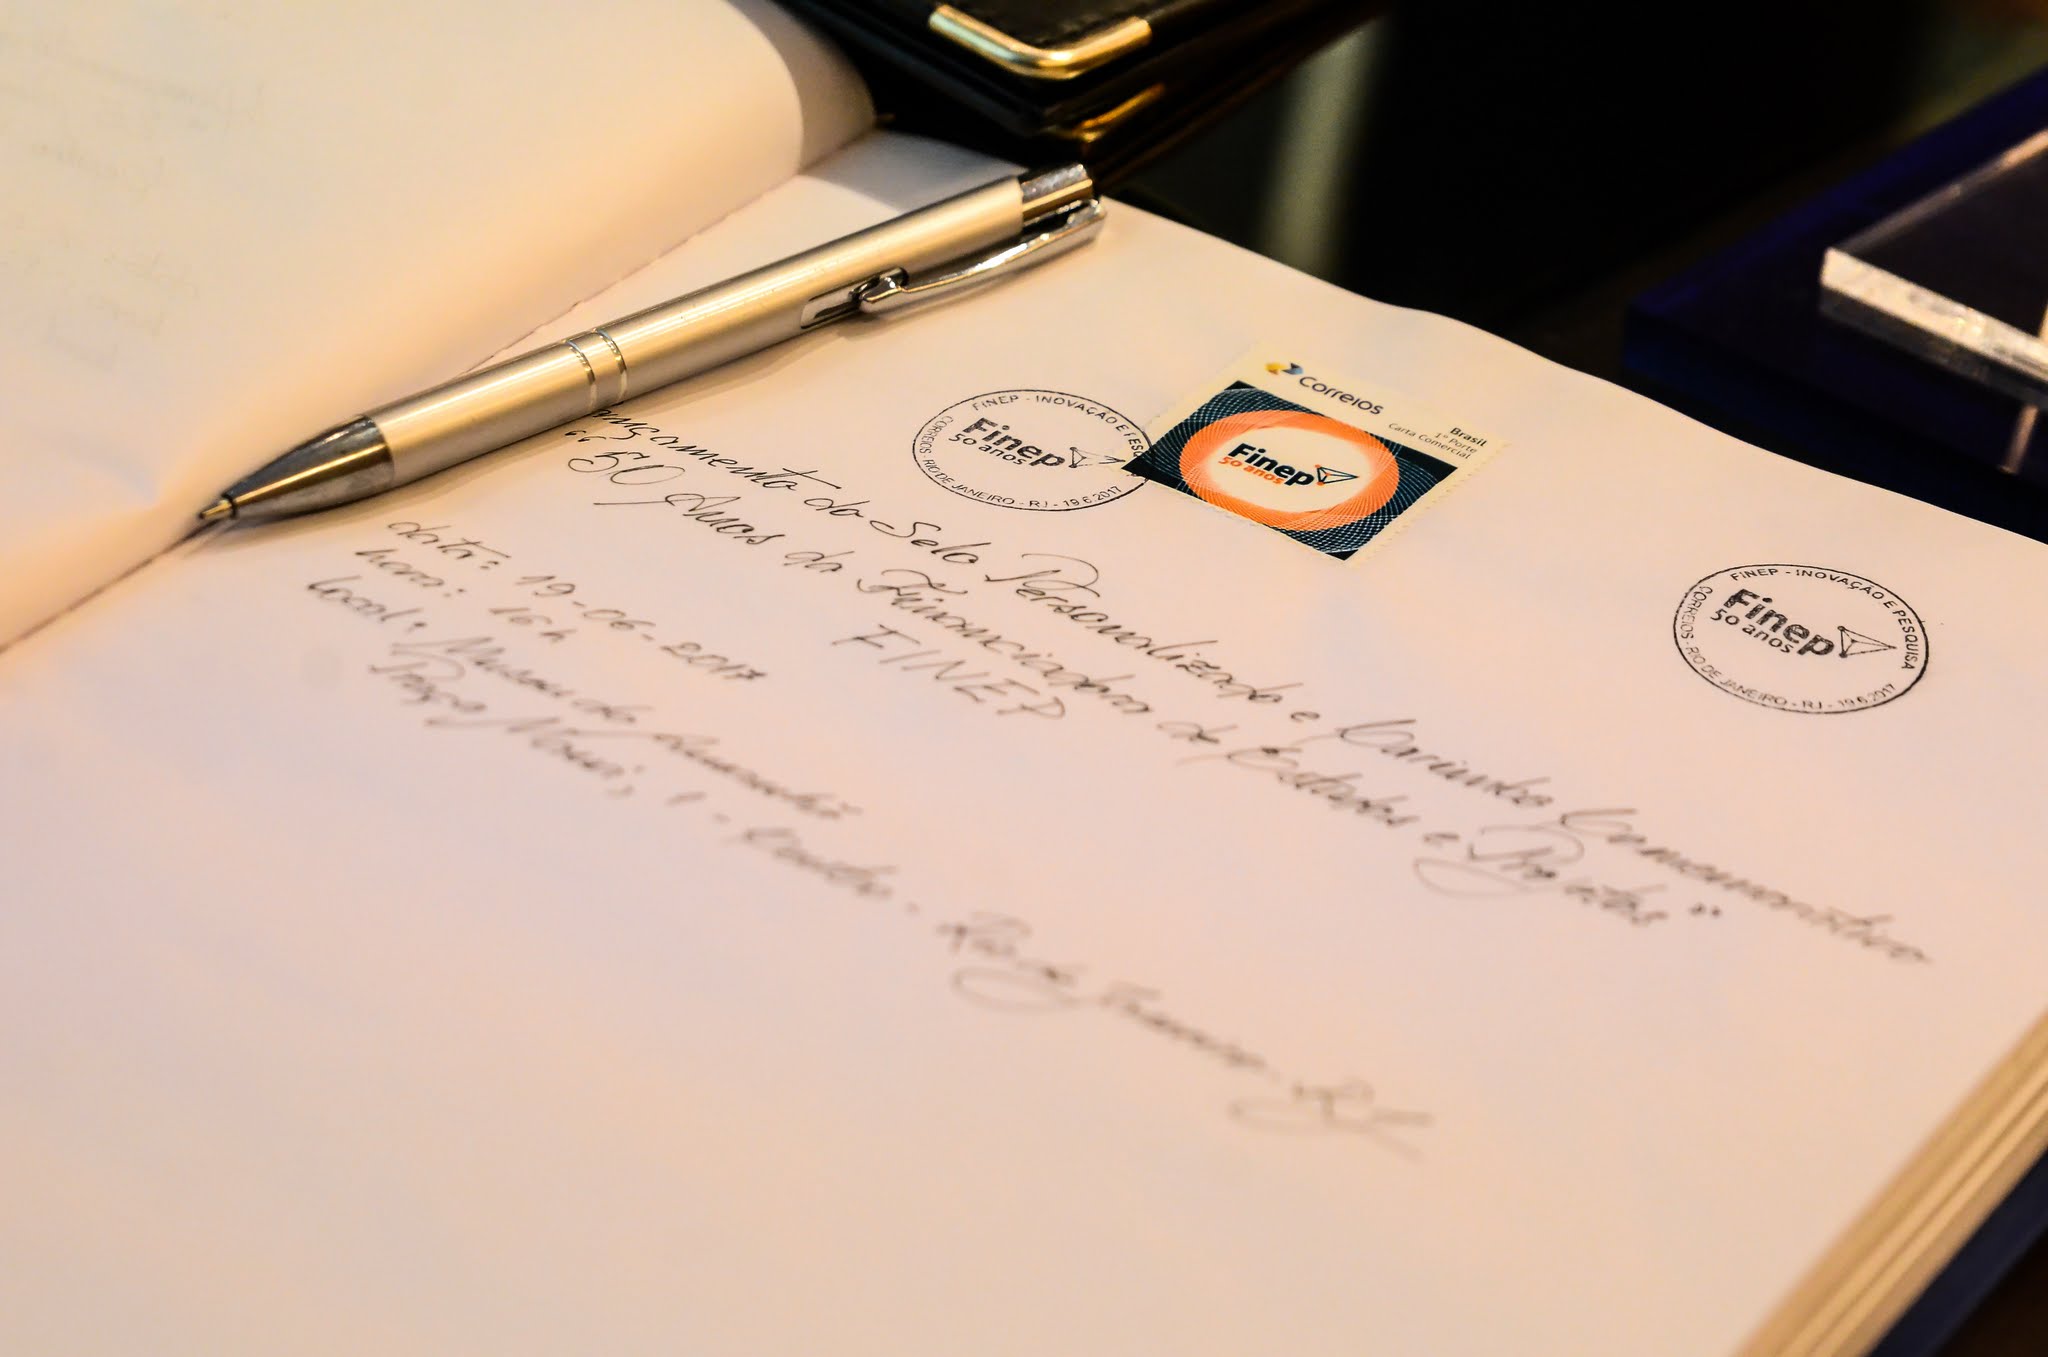 Correios
Brasil
1º Porte
Carta Comercial
Finep
50 anos
FINEP - INOVAÇÃO E PESQUISA
Finep
50 anos
CORREIOS - RIO DE JANEIRO - RJ - 19.6.2017
FINEP - INOVAÇÃO E PESQUISA
Finep
50 anos
CORREIOS - RIO DE JANEIRO - RJ - 19.6.2017
Lançamento do Selo Personalizado e Carimbo Comemorativo
"50 Anos da Financiadora de Estudos e Projetos"
FINEP
data: 19-06-2017
hora: 16h
local: Museu do Amanhã
Praça Mauá, 1 - Centro - Rio de Janeiro - RJ